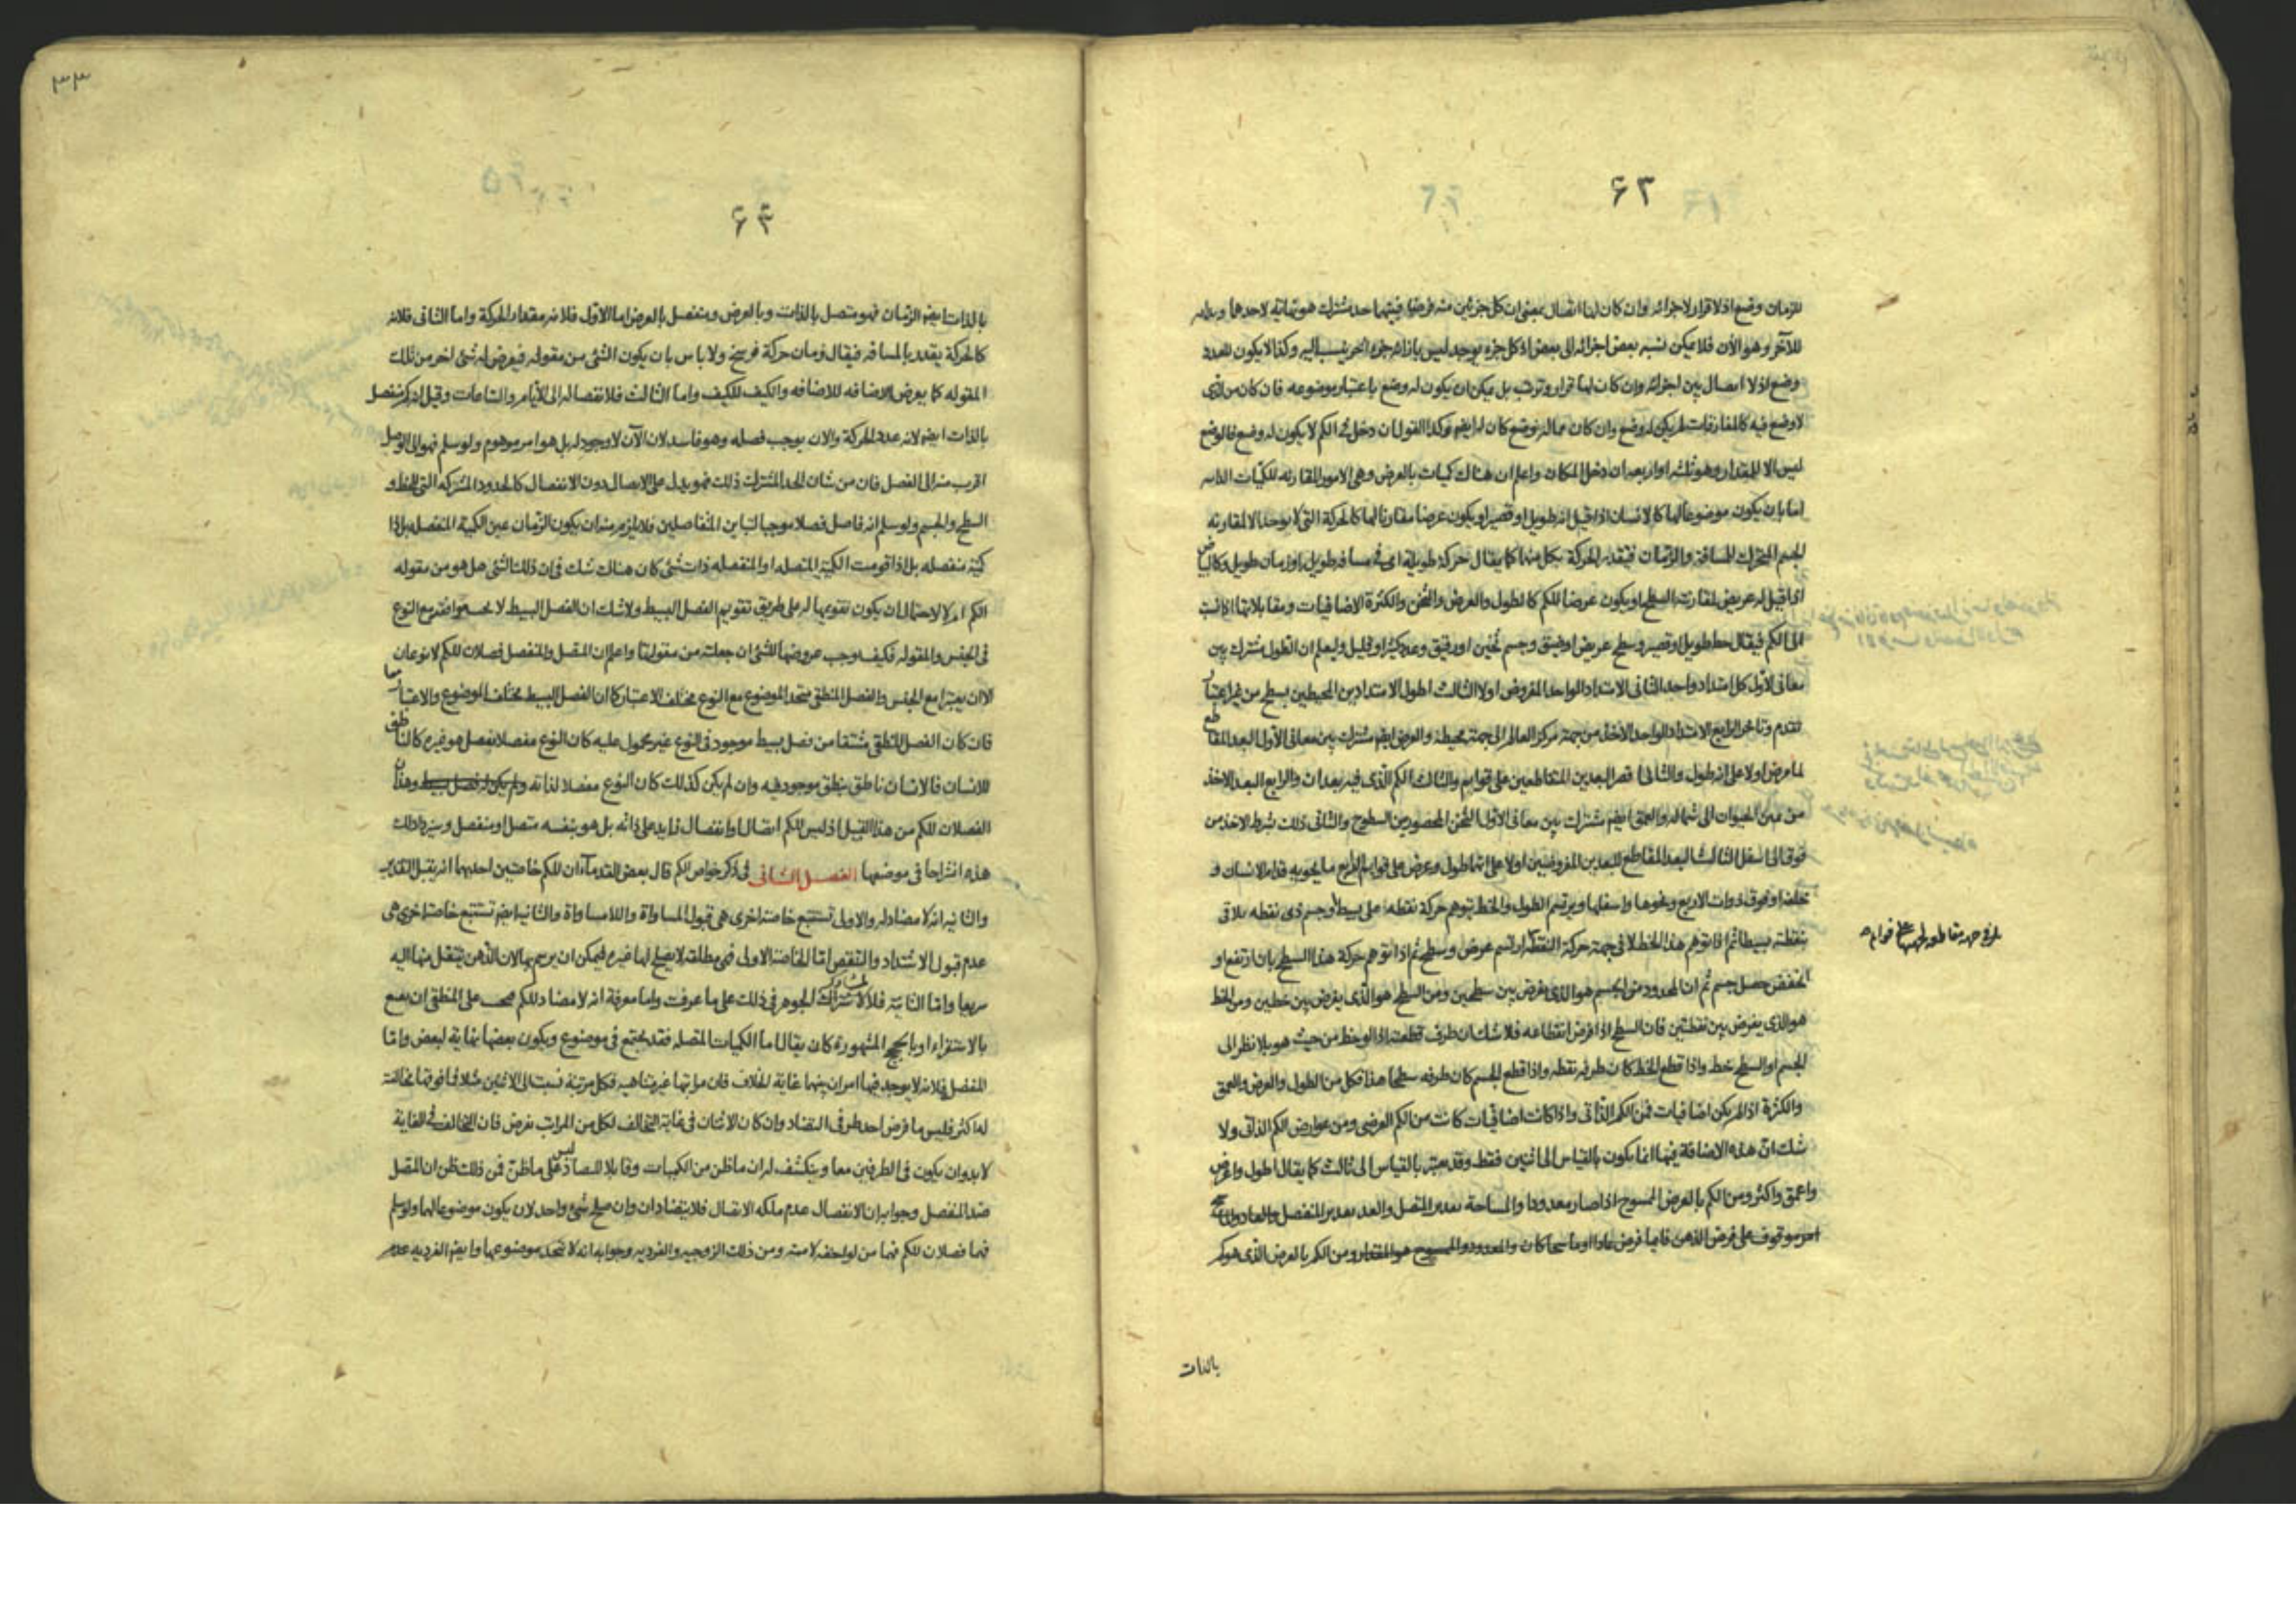 ۶۲
للزمان وضع اذ لا قرار لاجزائه وان كان لها اتصال بمعنى ان كل جزئين منه فرضا فبينهما حد مشترك هو نهاية لاحدها وبداية
للآخر وهو الآن فلا يمكن نسبة بعض اجزائه الى بعض اذ كل جزء يوجد ليس بازائه جزء اخر ينسب اليه وكذا لا يكون للعدد
وضع اذ لا اتصال بين اجزائه وان كان لها قرار وترتب بل يمكن ان يكون له وضع باعتبار موضوعه فان كان من الذى
لا وضع فيه كالمفارقات لم يكن له وضع وان كان مما له وضع كان له ايضا وكذا القول ان دخل فى الكم لا يكون له وضع فالوضع
ليس الا للمقدار وهو ثلثه او اربعه ان دخل المكان واعلم ان هناك كميات بالعرض وهى الامور المقارنه للكميات الذاتيه
اما بان يكون موضوعا لها كالانسان اذا قيل انه طويل او قصير او يكون عرضا مقارنا لها كالحركة التى لا يوجد الا لمقارنه
الجسم المتحرك المسافة والزمان فيتقدر الحركة بكل منهما كما يقال حركة طويلة اى فى مسافه طويله او زمان طويل وكالبياض
اذا قيل له عريض لمقارنته السطح او يكون عرضا للكم كالطول والعرض والثخن والكثرة الاضافيات ومقابلاتها اذا نسبت
الى الكم فيقال خط طويل او قصير وسطح عريض او ضيق وجسم ثخين او رقيق وعدد كثير او قليل وليعلم ان الطول مشترك بين
معانى الاول كل امتداد واحد الثانى الامتداد الواحد المفروض اولا الثالث اطول الامتدادين المحيطين بسطح من غير اعتبار
تقدم وتاخر الرابع الامتداد الواحد الاخذ من جهة مركز العالم الى جهة محيطه والعرض ايضا مشترك بين معانى الاول البعد المقاطع
لما فرض اولا على انه طول والثانى اقصر البعدين المتقاطعين على قوايم والثالث الكم الذى فيه بعدان والرابع البعد الاخذ
من يمين الحيوان الى شماله والعمق ايضا مشترك بين معانى الاول الثخن المحصور بين السطوح والثانى ذلك بشرط الاخذ من
فوق الى اسفل الثالث البعد المقاطع للبعدين المفروضين اولا على انهما طول وعرض على قوايم الرابع ما يحويه قدام الانسان و
خلفه او فوق ذوات الاربع ونحوها واسفلها ويرتسم الطول والخط بتوهم حركة نقطه على بسيط او جسم ذى نقطه يلاقى
بنقطته بسيطا ثم اذا توهم هذا الخط لا فى جهة حركة النقطه ارتسم عرض وسطح ثم اذا توهم حركة هذا السطح بان ارتفع او
انخفض حصل جسم ثم ان المحدود من الجسم هو الذى يفرض بين سطحين ومن السطح هو الذى يفرض بين خطين ومن الخط
هو الذى يفرض بين نقطتين فان السطح اذا فرض انقطاعه فلا شك ان طرف قطعته اذا لو خط من حيث هو بلا نظر الى
الجسم او السطح خط واذا قطع الخط كان طرفه نقطه واذا قطع الجسم كان طرفه سطحا هذا فكل من الطول والعرض والعمق
والكثرة اذا لم يكن اضافيات فمن الكم الذاتى واذا كانت اضافيات كانت من الكم العرضى ومن عوارض الكم الذاتى ولا
شك ان هذه الاضافة فيها انما يكون بالقياس الى اثنين فقط وقد يعتبر بالقياس الى ثالث كما يقال اطول واعرض
واعمق واكثر ومن الكم بالعرض المسوح اذا صار معدودا والمساحة تقدير المتصل والعد تقدير المنفصل
امر موقوف على فرض الذهن فايها فرض عادا او ماسحا كان والمعدود والمسوح هو المقدار ومن الكم بالعرض الذى هو كم
بالذات
۶۳
بالذات ايضا الزمان فهو متصل بالذات وبالعرض ومنفصل بالعرض اما الاول فلانه مقدار الحركة واما الثانى فلانه
كالحركة يقدر بالمسافه فيقال زمان حركة فرسخ ولا باس بان يكون الشئ من مقوله فيعرض له شئ اخر من تلك
المقوله كما يعرض الاضافه للاضافه والكيف للكيف واما الثالث فلانفصاله الى الايام والساعات وقيل انه كم منفصل
بالذات ايضا لانه عدد الحركة والان يوجب فصله وهو فاسد لان الآن لا وجود له بل هو امر موهوم ولو سلم فهو الى الوصل
اقرب منه الى الفصل فان من شان الحد المشترك ذلك فهو يدل على الاتصال دون الانفصال كالحدود المشتركه التى للخط و
السطح والجسم ولو سلم انه فاصل فصلا موجبا لتباين المنفاصلين فلا يلزم منه ان يكون الزمان عين الكمية المنفصله بل ذا
كمية منفصله بل اذا قومت الكمية المتصله او المنفصله ذات شئ كان هناك شك فى ان ذلك الشئ هل هو من مقوله
الكم ام لا لاحتمال ان يكون تقويمها له على طريق تقويم الفصل البسيط ولا شك ان الفصل البسيط لا يجب موافقته مع النوع
فى الجنس والمقوله فكيف وجب عروضها للشئ ان جعلته من مقولتها واعلم ان المتصل والمنفصل فصلان للكم لا نوعان
الا ان يعتبرا مع الجنس والفصل المنطقى متحد الموضوع مع النوع مختلف الاعتبار كما ان الفصل البسيط مختلف الموضوع والاعتبار
فان كان الفصل المنطقى مشتقا من فصل بسيط موجود فى النوع غير محمول عليه كان النوع مفصلا بفصل هو غيره كالناطق
للانسان فالانسان ناطق بنطق موجود فيه وان لم يكن كذلك كان النوع مفصلا لذاته ولم يكن له فصل بسيط وهذان
الفصلان للكم من هذا القبيل اذ ليس للكم اتصال او انفصال زايد على ذاته بل هو بنفسه متصل او منفصل وسيزداد لك
هذه انشراحا فى موضعها الفصل الثانى فى ذكر خواص الكم قال بعض القدماء ان للكم خاصتين احديهما انه يقبل التقدير
والثانيه انه لا مضاد له والاولى تستتبع خاصة اخرى هى قبول المساواة واللا مساواة والثانية ايضا تستتبع خاصة اخرى هى
عدم قبول الاشتداد والتنقص اما الخاصة الاولى فهى مطلقة لا يصلح لها غيره فيمكن ان يرسم بها لان الذهن ينتقل منها اليه
سريعا واما الثانية فلا لاشتراك الجوهر فى ذلك على ما عرفت واما معرفة انه لا مضاد للكم فيجب على المنطقى ان يقنع
بالاستقراء او بالحجج المشهورة كان يقال اما الكميات المتصله فقد يجتمع فى موضوع ويكون بعضها نهاية لبعض واما
المنفصل فلانه لا يوجد فيها امران بينهما غاية الخلاف فان مراتبها غير متناهيه فكل مرتبة نسبت الى الاثنين مثلا فما فوقها مخالفته
له اكثر فليس ما فرض احد طرفى التضاد وان كان الاثنان فى غاية التخالف لكل من المراتب نفرض فان التخالف فى الغاية
لابد وان يكون فى الطرفين معا وينكشف له ان ما ظن من الكميات وقابلا للتضاد ليس على ما ظن فمن ذلك ظن ان المتصل
ضد المنفصل وجوابه ان الانفصال عدم ملكه الاتصال فلا يتضادان وان صلح شئ واحد لان يكون موضوعا لهما ولو سلم
فهما فصلان للكم فهما من لواحقه لا منه ومن ذلك الزوجيه والفرديه وجوابه انه لا يتحد موضوعهما وايضا الفرديه عدم